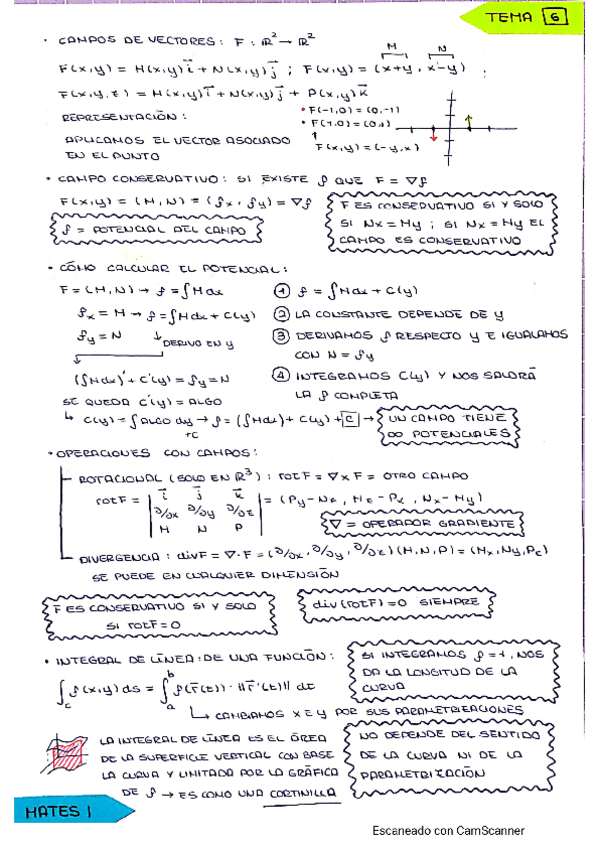 TEMA 6
· CAMPOS DE VECTORES: F: ℝ² → ℝ²
M N
F(x,y) = M(x,y)i⃗ + N(x,y)j⃗ ; F(x,y) = (x+y, x-y) ;
F(x,y,z) = M(x,y)i⃗ + N(x,y)j⃗ + P(x,y)k⃗
REPRESENTACIÓN:
• F(-1,0) = (0,-1)
• F(1,0) = (0,1)
F(x,y) = (-y,x)
APLICAMOS EL VECTOR ASOCIADO
EN EL PUNTO
· CAMPO CONSERVATIVO: SI EXISTE f QUE F = ∇f
F(x,y) = (M,N) = (fx, fy) = ∇f
f = POTENCIAL DEL CAMPO
F ES CONSERVATIVO SI Y SOLO
SI Nx = My ; SI Nx = My EL
CAMPO ES CONSERVATIVO
· CÓMO CALCULAR EL POTENCIAL:
F = (M,N) → f = ∫M dx
fx = M → f = ∫M dx + C(y)
fy = N ↳ DERIVO EN y
(∫M dx)' + C'(y) = fy = N
SE QUEDA C'(y) = ALGO
↳ C(y) = ∫ALGO dy → f = (∫M dx) + C(y) + C →
+C
1 f = ∫M dx + C(y)
2 LA CONSTANTE DEPENDE DE y
3 DERIVAMOS f RESPECTO y E IGUALAMOS
CON N = fy
4 INTEGRAMOS C(y) Y NOS SALDRÁ
LA f COMPLETA
UN CAMPO TIENE
∞ POTENCIALES
· OPERACIONES CON CAMPOS:
ROTACIONAL (SOLO EN ℝ³): rotF = ∇ x F = OTRO CAMPO
i⃗ j⃗ k⃗
rotF = | ∂/∂x ∂/∂y ∂/∂z | = (Py - Nz, Mz - Px, Nx - My)
M N P
∇ = OPERADOR GRADIENTE
DIVERGENCIA: divF = ∇·F = (∂/∂x, ∂/∂y, ∂/∂z)(M,N,P) = (Mx, Ny, Pz)
SE PUEDE EN CUALQUIER DIMENSIÓN
F ES CONSERVATIVO SI Y SOLO
SI rotF = 0
div (rotF) = 0 SIEMPRE
· INTEGRAL DE LÍNEA: DE UNA FUNCIÓN:
∫c f(x,y) ds = ∫ₐᵇ f(r⃗(t)) · ||r⃗'(t)|| dt
↳ CAMBIAMOS X E Y POR SUS PARAMETRIZACIONES
SI INTEGRAMOS f = 1, NOS
DA LA LONGITUD DE LA
CURVA
LA INTEGRAL DE LÍNEA ES EL ÁREA
DE LA SUPERFICIE VERTICAL CON BASE
LA CURVA Y LIMITADA POR LA GRÁFICA
DE f → ES COMO UNA CORTINILLA
NO DEPENDE DEL SENTIDO
DE LA CURVA NI DE LA
PARAMETRIZACIÓN
MATES 1
Escaneado con CamScanner